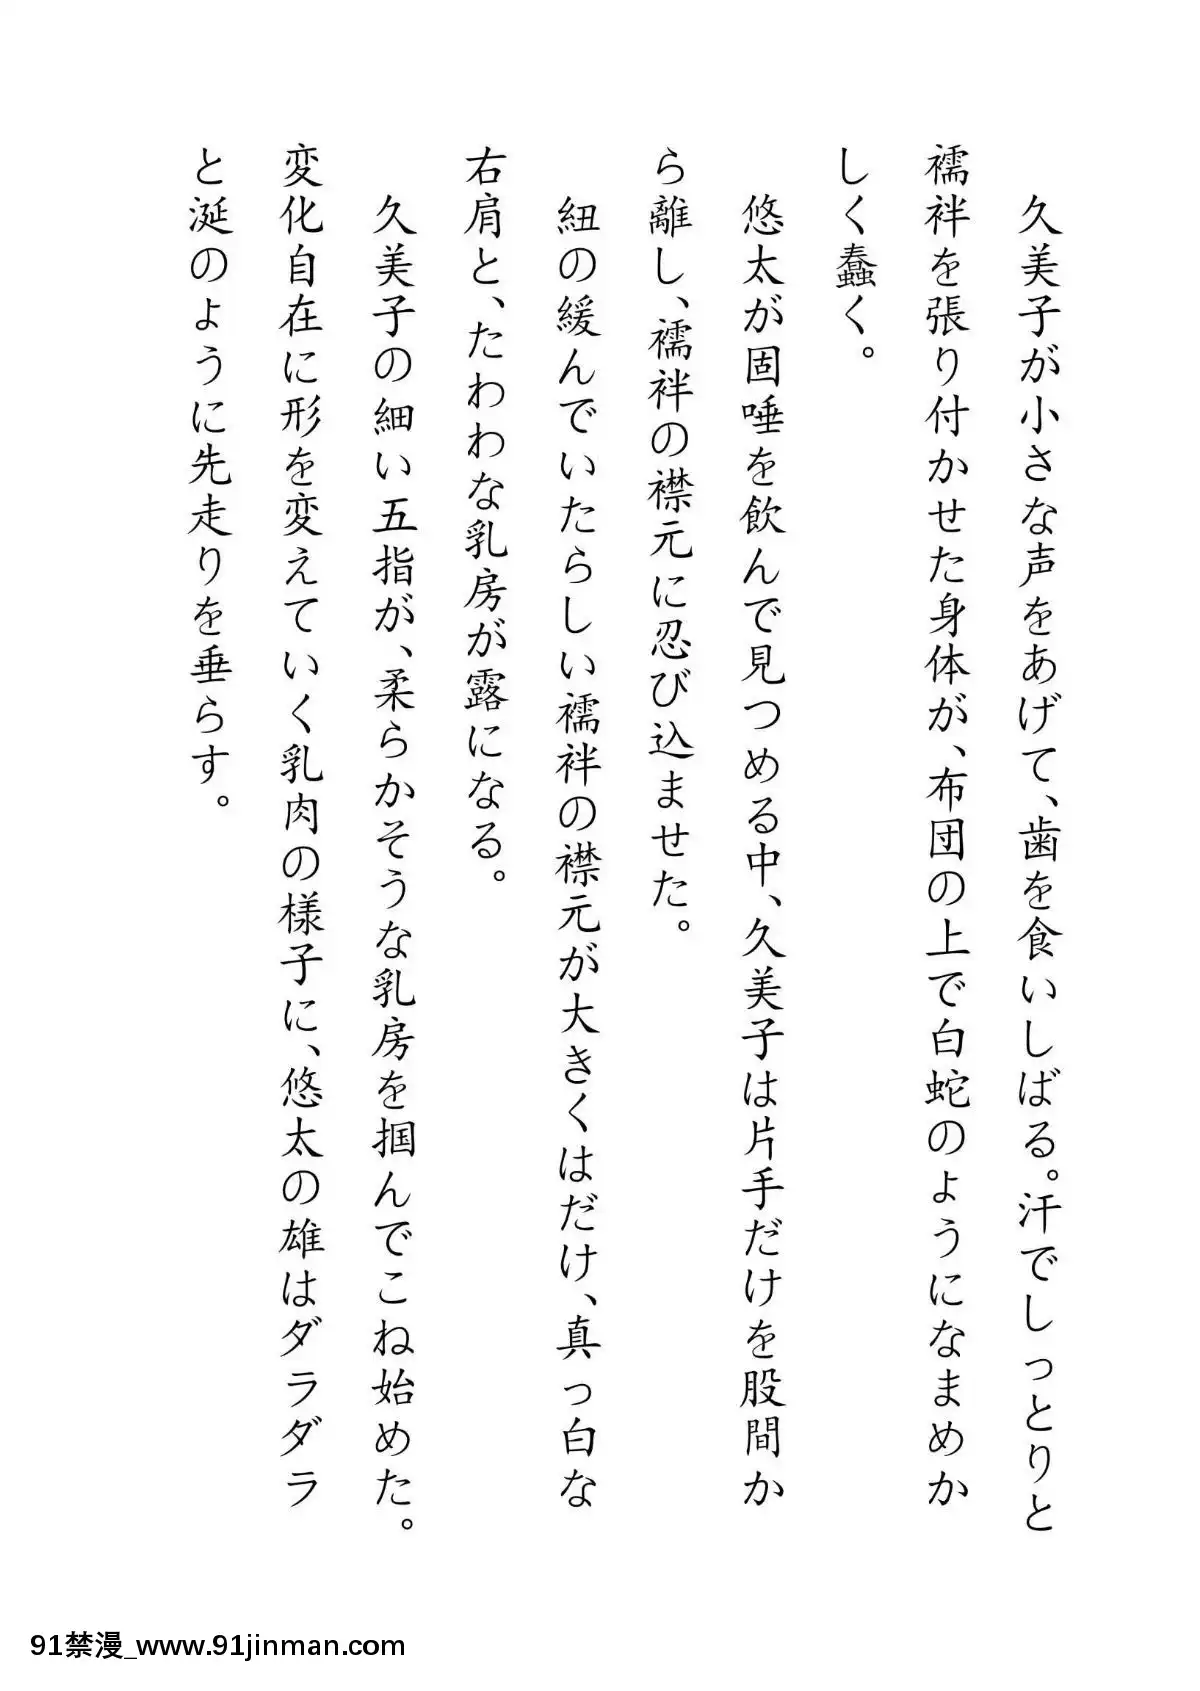 久美子が小さな声をあげて、歯を食いしばる。汗でしっとりと
襦袢を張り付かせた身体が、布団の上で白蛇のようになまめか
しく蠢く。
悠太が固唾を飲んで見つめる中、久美子は片手だけを股間か
ら離し、襦袢の襟元に忍び込ませた。
紐の緩んでいたらしい襦袢の襟元が大きくはだけ、真っ白な
右肩と、たわわな乳房が露になる。
久美子の細い五指が、柔らかそうな乳房を掴んでこね始めた。
変化自在に形を変えていく乳肉の様子に、悠太の雄はダラダラ
と涎のように先走りを垂らす。
91禁漫_www.91jinman.com